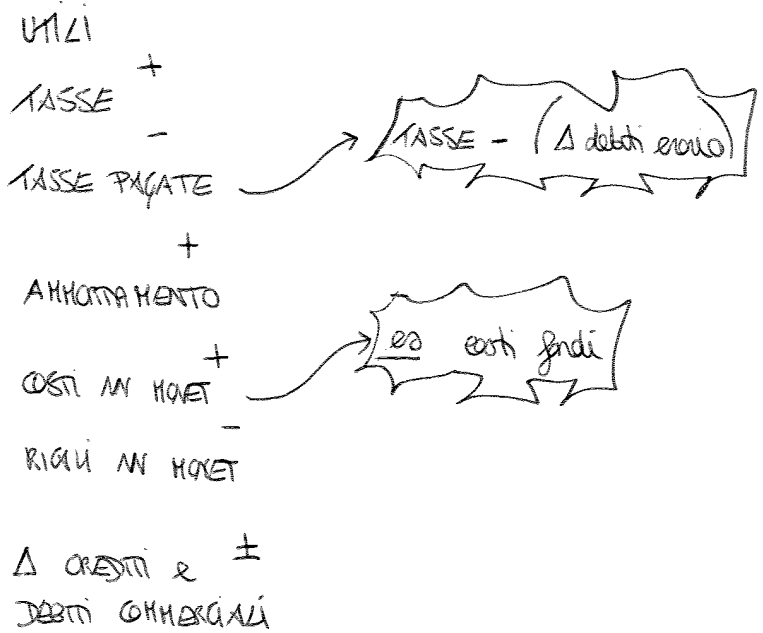 UTILI
+
TASSE
-
TASSE PAGATE
TASSE - (Δ debiti erario)
+
AMMORTAMENTO
+
COSTI NN MONET
es costi fondi
-
RICAVI NN MONET
±
Δ CREDITI e
DEBITI COMMERCIALI